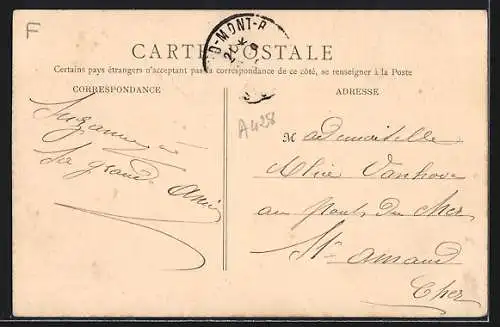 F
D-MONT-R
CARTE POSTALE
Certains pays étrangers n'acceptant pas la correspondance de ce côté, se renseigner à la Poste
CORRESPONDANCE
ADRESSE
A4258
Suzanne à
Sa grande Amie
Mademoiselle
Alice Vanhove
au Ponts du Cher
St Amand
Cher